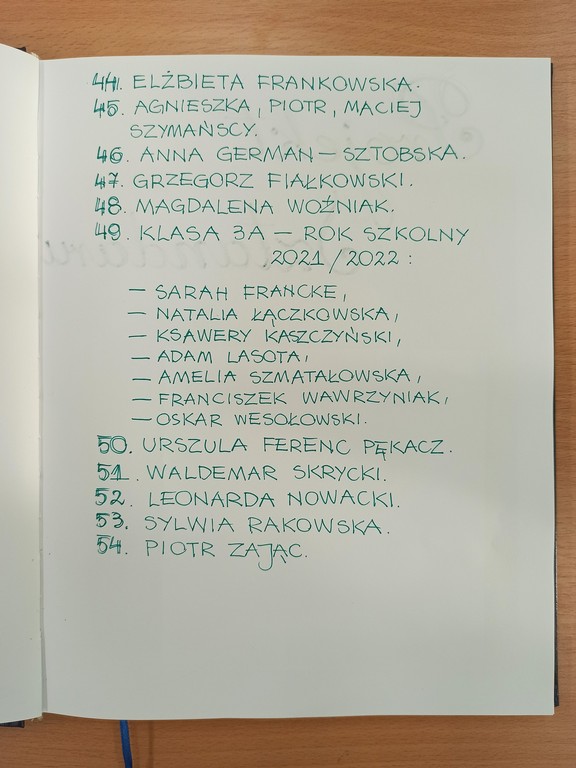 44. ELŻBIETA FRANKOWSKA.
45. AGNIESZKA, PIOTR, MACIEJ
SZYMAŃSCY.
46. ANNA GERMAN – SZTOBSKA.
47. GRZEGORZ FIAŁKOWSKI.
48. MAGDALENA WOŹNIAK.
49. KLASA 3A – ROK SZKOLNY
2021/2022 :
– SARAH FRANCKE,
– NATALIA ŁĄCZKOWSKA,
– KSAWERY KASZCZYŃSKI,
– ADAM LASOTA,
– AMELIA SZMATAŁOWSKA,
– FRANCISZEK WAWRZYNIAK,
– OSKAR WESOŁOWSKI.
50. URSZULA FERENC PĘKACZ.
51. WALDEMAR SKRYCKI.
52. LEONARDA NOWACKI.
53. SYLWIA RAKOWSKA.
54. PIOTR ZAJĄC.